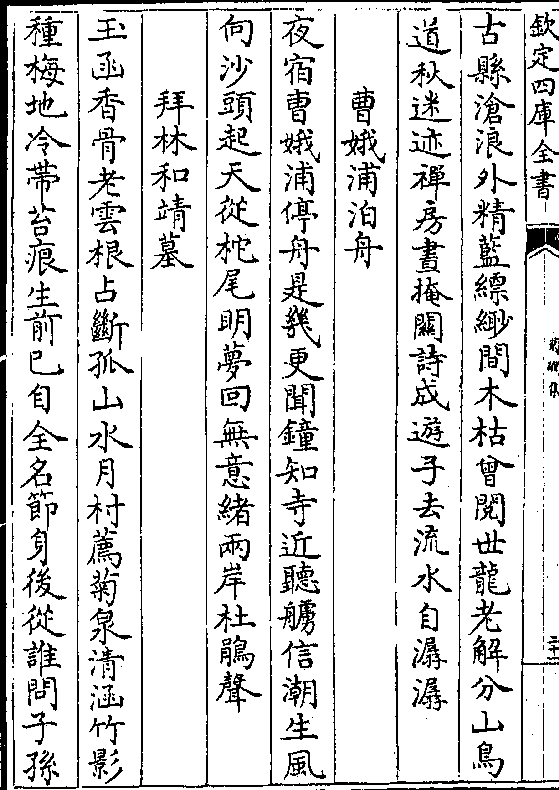 欽定四庫全書
古縣滄浪外精藍縹緲間木枯曾閱世龍老解分山鳥
道秋迷迹禪房晝掩關詩成遊子去流水自潺潺
曹娥浦泊舟
夜宿曹娥浦停舟是幾更聞鐘知寺近聽艣信潮生風
向沙頭起天從柁尾明夢回無意緒兩岸杜鵑聲
拜林和靖墓
玉函香骨老雲根占斷孤山水月村薦菊泉清涵竹影
種梅地冷帶苔痕生前已自全名節身後從誰問子孫